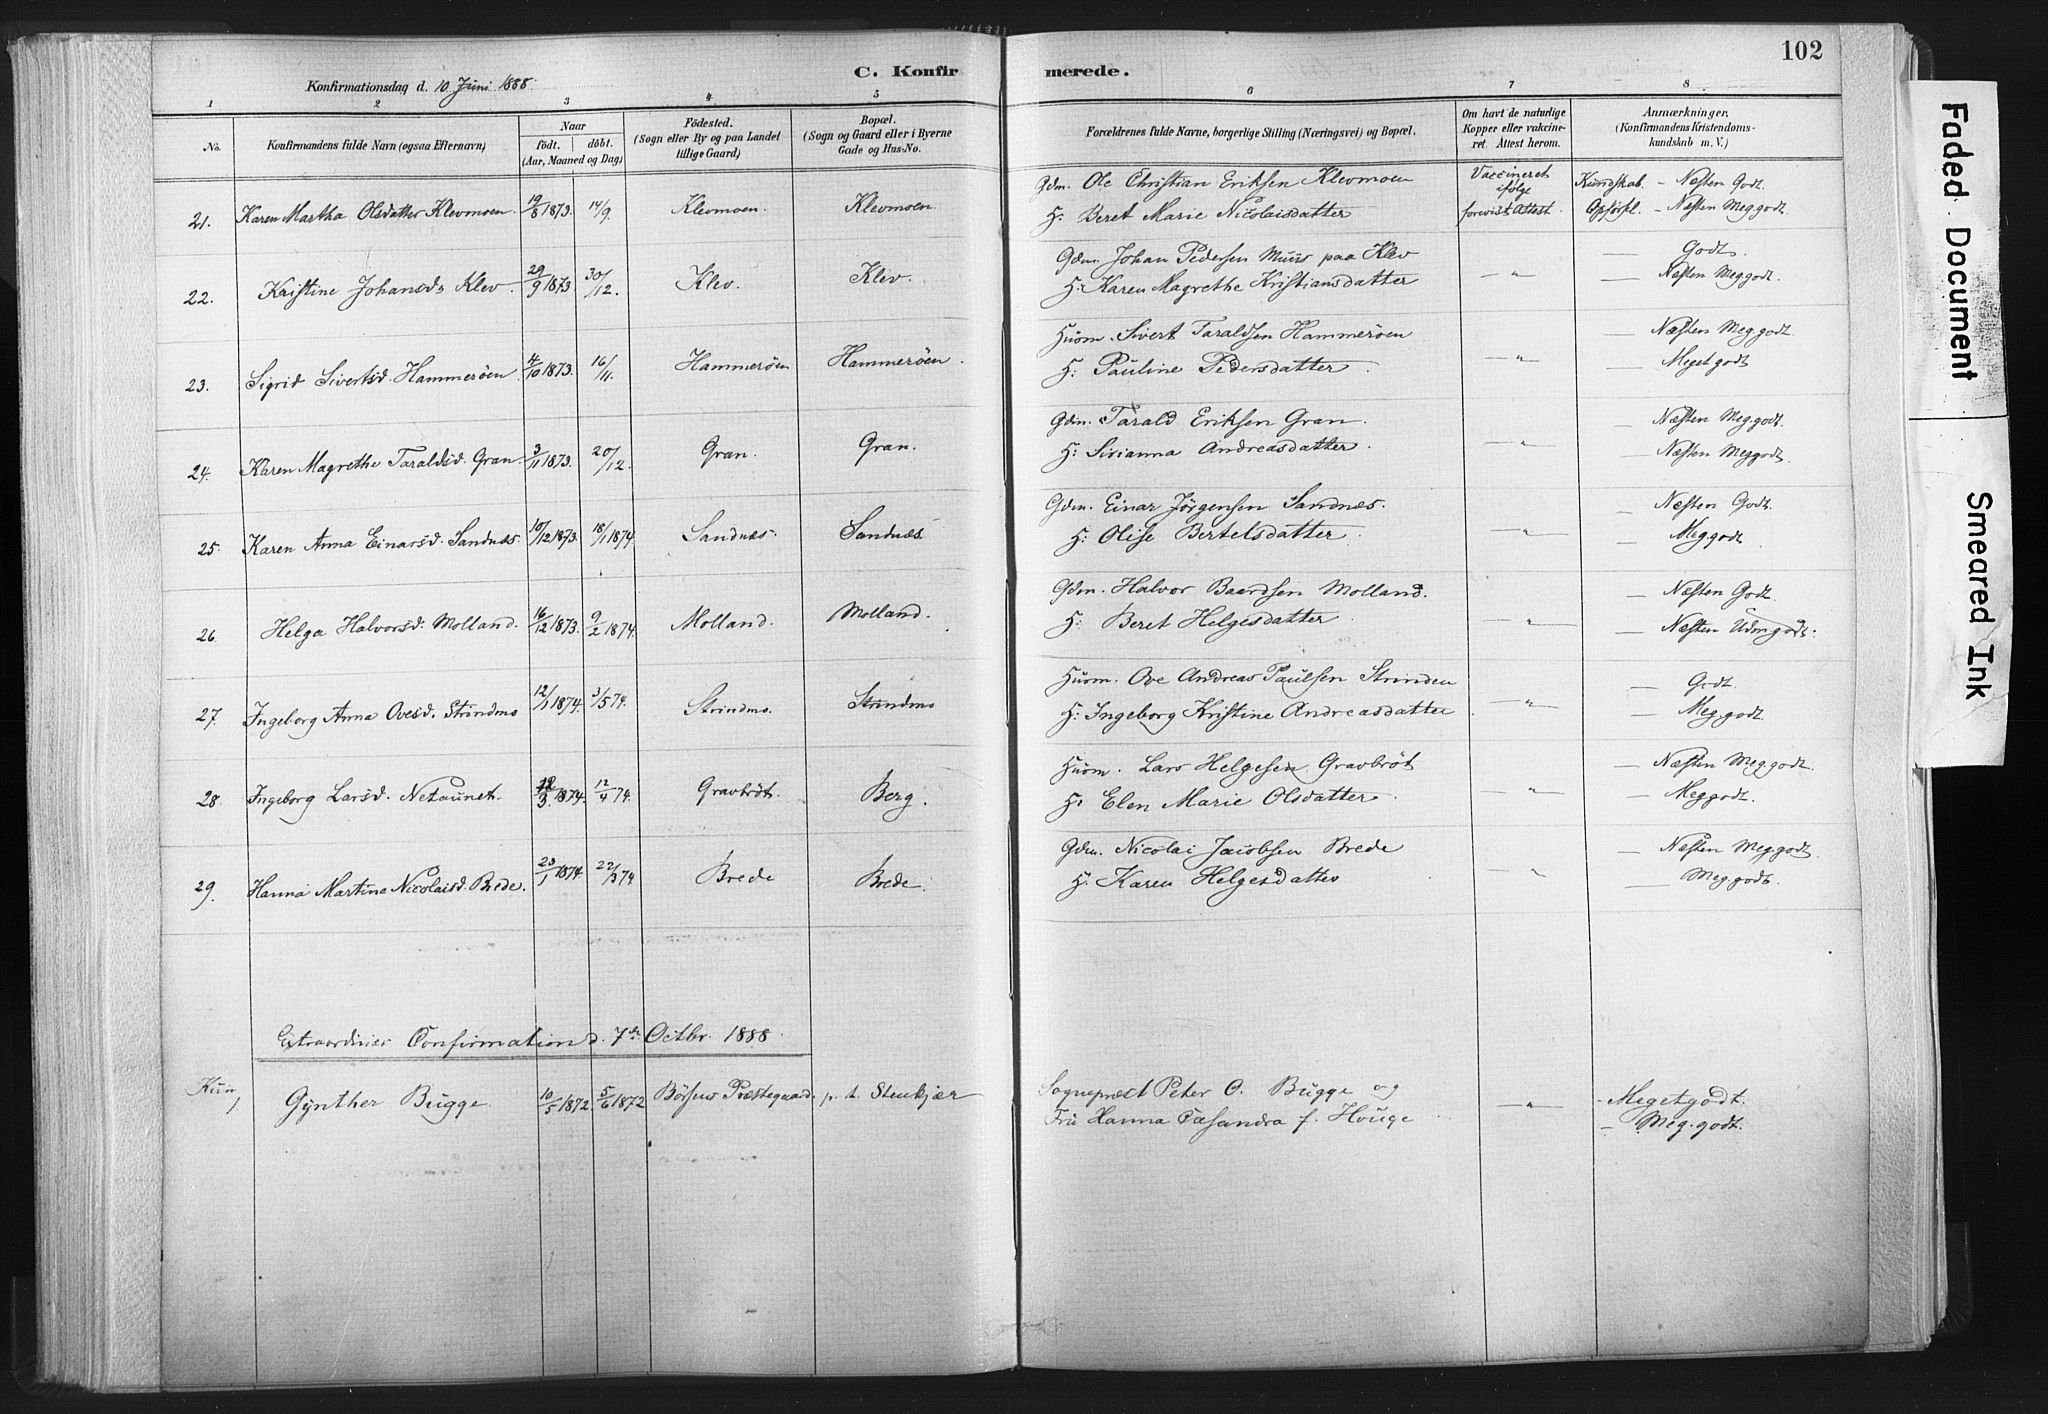 102
C. Konfirmerede.
Konfirmationsdag d. 10 Juni 1888.
1 2 3 4 5 6 7 8
No. Konfirmandens fulde Navn (ogsaa Efternavn) Naar födt. döbt. (Aar, Maaned og Dag) Födested. (Sogn eller By og paa Landet tillige Gaard) Bopæl. (Sogn og Gaard eller i Byerne Gade og Hus-No. Forældrenes fulde Navne, borgerlige Stilling (Næringsvei) og Bopæl. Om havt de naturlige Kopper eller vakcineret. Attest herom. Anmærkninger. (Konfirmandens Kristendomskundskab m. V.)
21. Karen Martha Olsdatter Klevmoen. 19/8 1873. 14/9. Klevmoen. Klevmoen. Gdm. Ole Christian Eriksen Klevmoen Vaccineret ifølge Kundskab. - Næsten Godt.
H: Beret Marie Nicolaisdatter forevist Attest. Opførsl. - Næsten Meg. godt.
22. Kristine Johansd. Klev. 29/9 1873. 30/12. Klev. Klev. Gdm. Johan Pedersen Muus paa Klev — " — — Godt.
H: Karen Magrethe Kristiansdatter — Næsten Meg. godt.
23. Sigrid Sivertsd. Hammerøen. 4/10 1873. 16/11. Hammerøen Hammerøen. Husm. Sivert Taraldsen Hammerøen — " — — Næsten Meg. godt.
H: Pauline Pedersdatter. — Meget godt
24. Karen Magrethe Taraldsd. Gran. 3/11 1873. 20/12. Gran. Gran. Gdm. Tarald Eriksen Gran. — " — — Næsten Meg. godt.
H: Sirianna Andreasdatter. — Næsten Meg godt.
25. Karen Anna Einarsd. Sandnæs. 10/12 1873. 18/1 1874. Sandnæs. Sandnæs. Gdm. Einar Jørgensen Sandnæs. — " — — Næsten Godt.
H: Olise Bertelsdatter. — Meg godt
26. Helga Halvorsd. Molland. 16/12 1873. 9/2 1874. Molland. Molland. Gdm. Halvor Baardsen Molland. — " — — Næsten Godt.
H: Beret Helgesdatter. — Næsten Udm godt.
27. Ingeborg Anna Ovesd. Strindmo 12/1 1874. 3/5 74. Strindmo. Strindmo Husm. Ove Andreas Paulsen Strinden — " — — Godt.
H: Ingeborg Kristine Andreasdatter — Meg. godt.
28. Ingeborg Larsd. Netaunet. /3 1874. 12/4 74. Gravbrøt. Berg. Husm. Lars Helgesen Gravbrøt — " — — Næsten Meg. godt.
H: Elen Marie Olsdatter. — Meg godt.
29. Hanna Martine Nicolaisd. Brede. 23/1 1874 22/3 74 Brede Brede. Gdm. Nicolai Jacobsen Brede — " — — Næsten Meg godt.
H. Karen Helgesdatter — Meg. godt.
Extraordinær Confirmation d. 7de Octbr. 1888.
Kun 1 Gynther Bugge 10/5 1872. 5/6 1872 Børsens Præstegaard. p. t. Stenkjær Sognepræst Peter O. Bugge og — " — - Meget godt.
Fru Hanna Casandra f. Houge - Meg. godt.
Faded Document
Smeared Ink